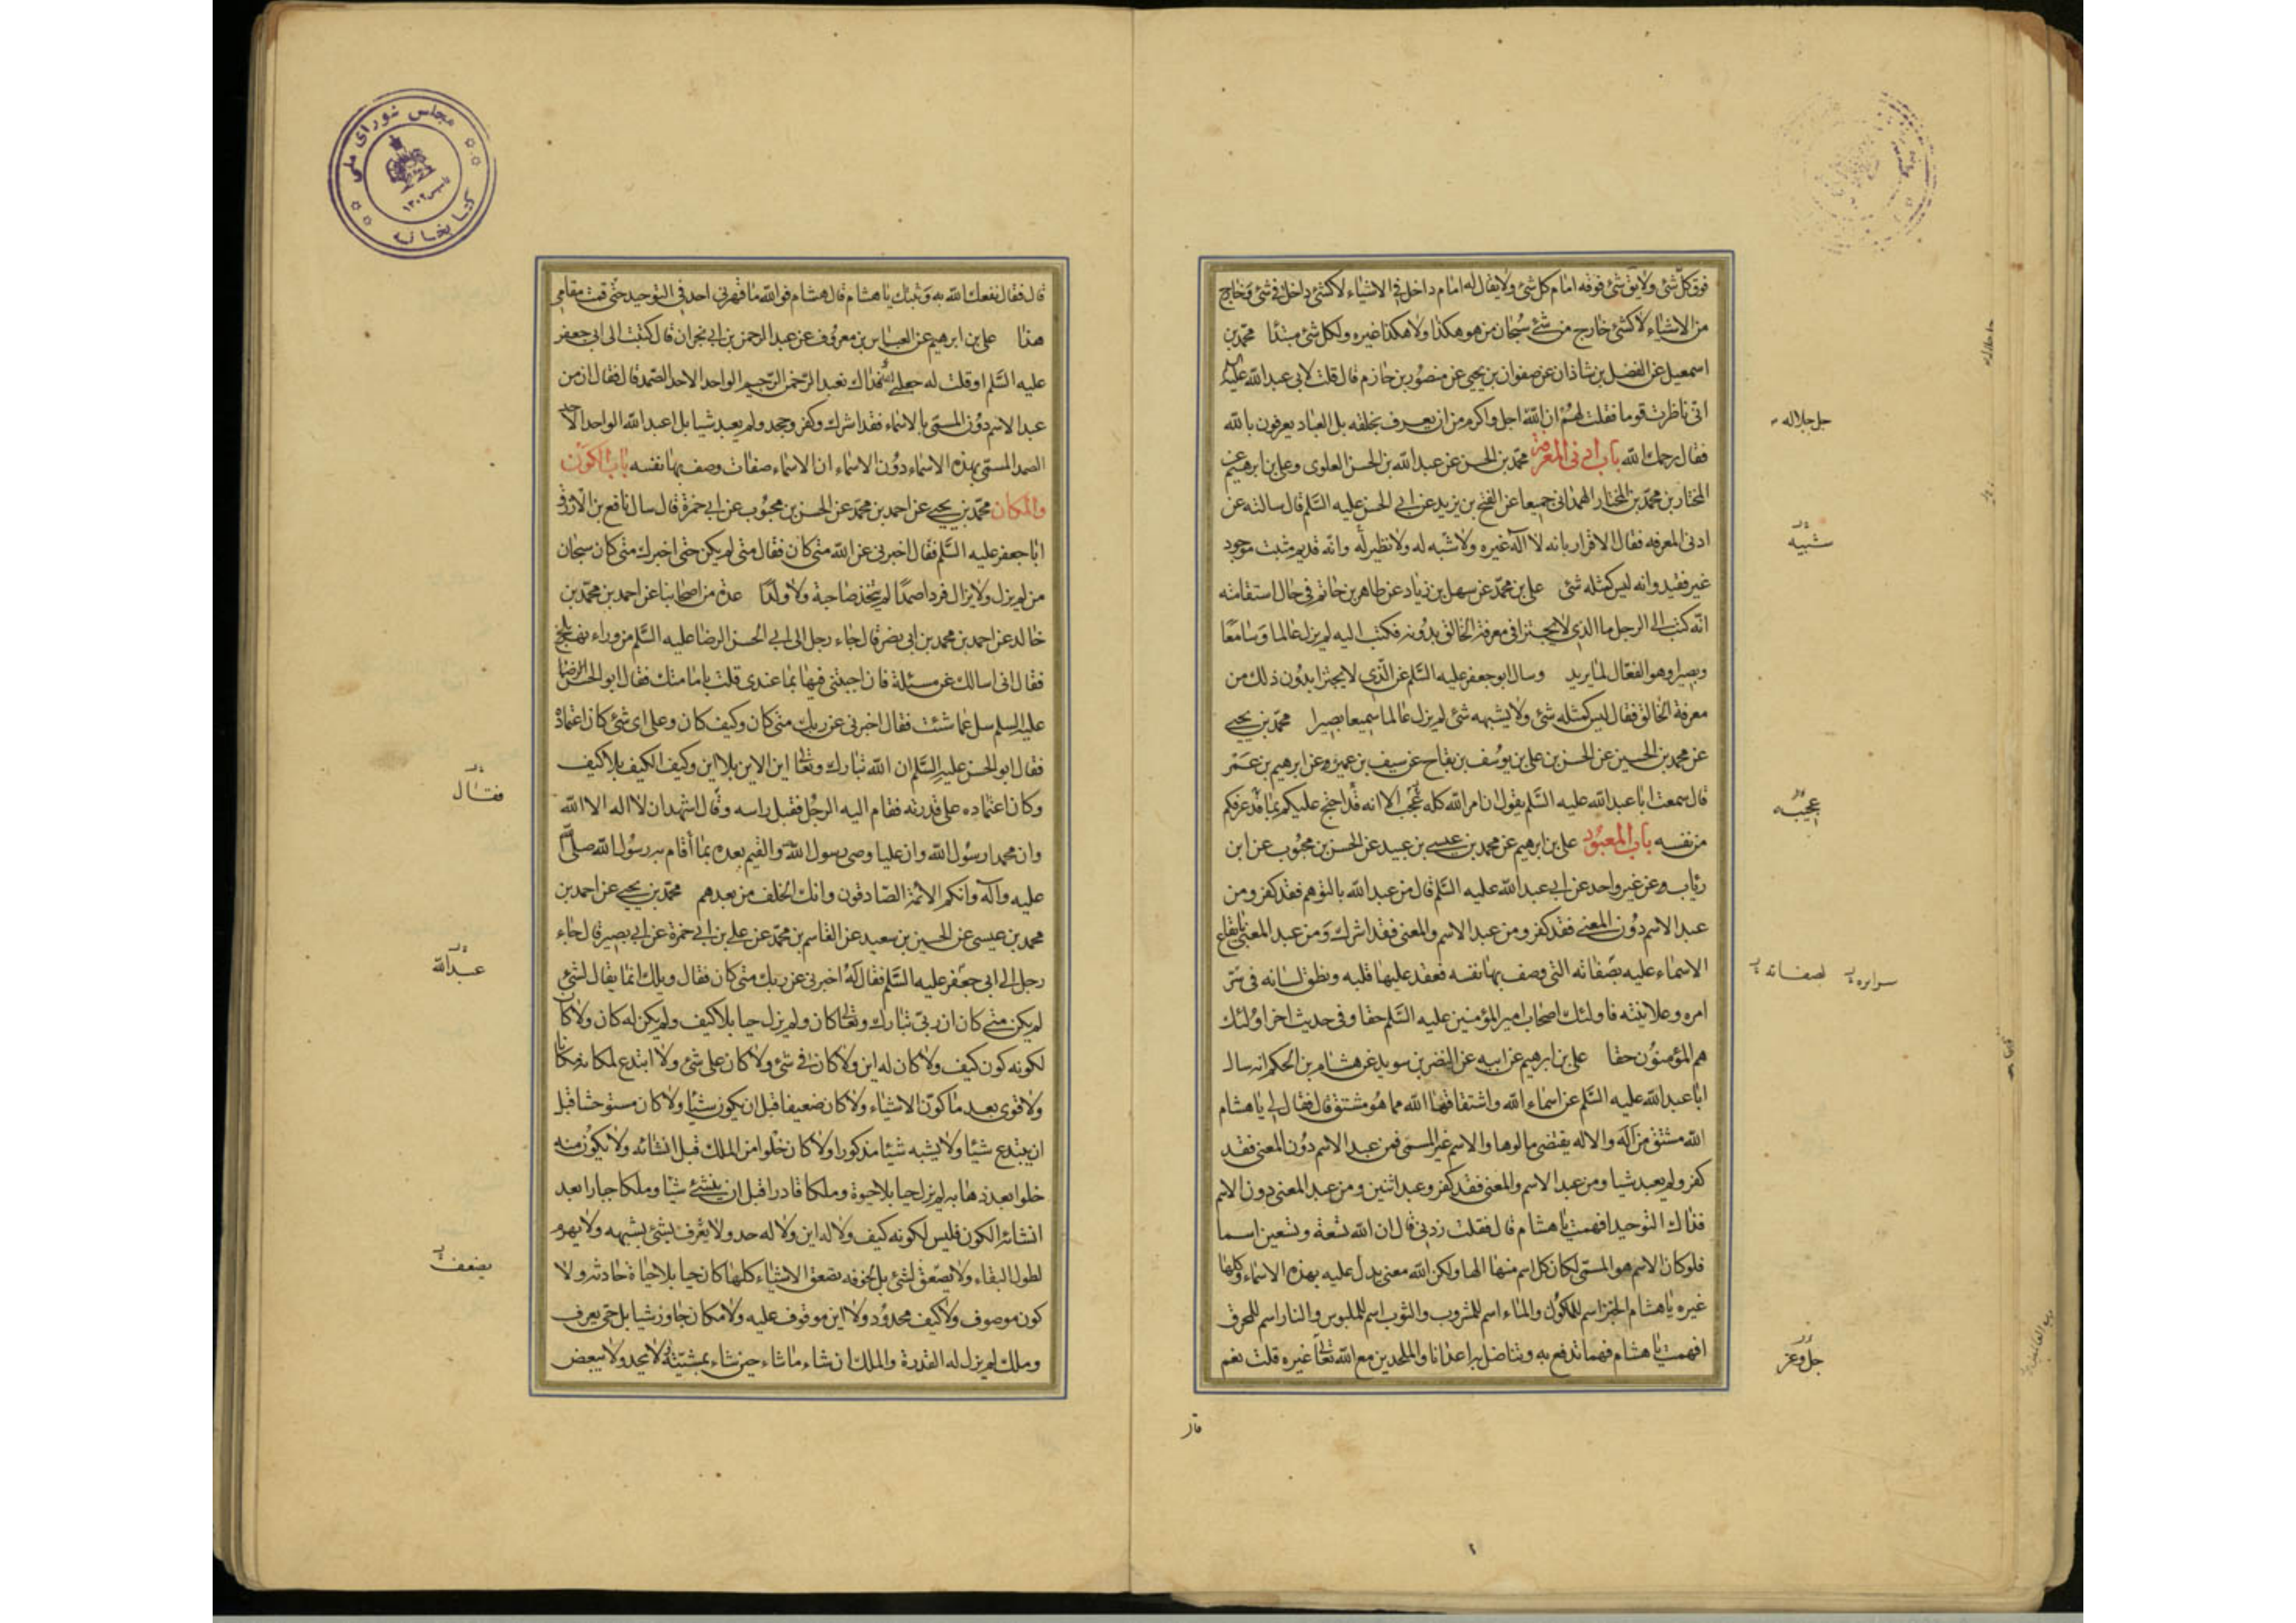 فوق كلّ شئ ولا يقٰ شئ فوقه امام كل شئ ولا يقال له امام داخل في الاشياء لا كشئ داخل في شئ وخارج
من الاشياء لا كشئ خارج من شئ سبحان من هو هكذا ولا هكذا غيره ولكل شئ مبتدأ محمد بن
اسمعيل عن الفضل بن شاذان عن صفوان بن يحيى عن منصور بن حازم قال قلت لابي عبد الله عليه
انى ناظرت قوما فقلت لهم ان الله اجل واكرم من ان يعرف بخلقه بل العباد يعرفون بالله
فقال رحمك الله باب ادنى المعرفة محمد بن الحسن عن عبد الله بن الحسن العلوى وعلى بن ابرهيم عن
المختار بن محمد بن المختار الهمدانى جميعا عن الفتح بن يزيد عن ابى الحسن عليه السلم قال سالته عن
ادنى المعرفه فقال الاقرار بانه لا اله غيره ولا شبه له ولا نظير له وانه قديم مثبت موجود
غير فقيد وانه ليس كمثله شئ على بن محمد عن سهل بن زياد عن طاهر بن حاتم فى حال استقامته
انه كتب الى الرجل ما الذى لا يجتزا فى معرفة الخالق بدونه فكتب اليه لم يزل عالما وسامعا
وبصيرا وهو الفعال لما يريد وسال ابو جعفر عليه السلم عن الذى لا يجتزا بدون ذلك من
معرفة الخالق فقال ليس كمثله شئ ولا يشبهه شئ لم يزل عالما سميعا بصيرا محمد بن يحيى
عن محمد بن الحسين عن الحسن بن على بن يوسف بن بقاح عن سيف بن عميرة عن ابرهيم بن عمر
قال سمعت ابا عبد الله عليه السلم يقول ان امر الله كله عجب الا انه قد احتج عليكم بما قد عرفكم
من نفسه باب المعبود على بن ابرهيم عن محمد بن عيسى بن عبيد عن الحسن بن محبوب عن ابن
رئاب وعن غير واحد عن ابى عبد الله عليه السلم قال من عبد الله بالتوهم فقد كفر ومن
عبد الاسم دون المعنى فقد كفر ومن عبد الاسم والمعنى فقد اشرك ومن عبد المعنى بايقاع
الاسماء عليه بصفاته التى وصف بها نفسه فعقد عليها قلبه ونطق لسانه فى سر
امره وعلانيته فاولئك اصحاب امير المؤمنين عليه السلم حقا وفى حديث اخر اولئك
هم المؤمنون حقا على بن ابرهيم عن ابيه عن النضر بن سويد عن هشام بن الحكم انه سال
ابا عبد الله عليه السلم عن اسماء الله واشتقاقها الله مما هو مشتق قال فقال لى يا هشام
الله مشتق من اله والاله يقتضى مالوها والاسم غير المسمى فمن عبد الاسم دون المعنى فقد
كفر ولم يعبد شيا ومن عبد الاسم والمعنى فقد كفر وعبد اثنين ومن عبد المعنى دون الاسم
فذاك التوحيد افهمت يا هشام قال فقلت زدنى قال ان الله تسعة وتسعين اسما
فلو كان الاسم هو المسمى لكان كل اسم منها الها ولكن الله معنى يدل عليه بهذه الاسماء وكلها
غيره يا هشام الخبز اسم للماكول والماء اسم للمشروب والثوب اسم للملبوس والنار اسم للمحرق
افهمت يا هشام فهما تدفع به وتناضل به اعدانا والملحدين مع الله تعالى غيره قلت نعم
قال
جل جلاله
شبيه
عجيبه
سرايره لصفاته
جل وعز
قال فقال نفعك الله به وثبتك يا هشام قال هشام فوالله ما قهرنى احد فى التوحيد حتى قمت مقامى
هذا على بن ابرهيم عن العباس بن معروف عن عبد الرحمن بن ابى نجران قال كتبت الى ابى جعفر
عليه السلم او قلت له جعلنى الله فداك نعبد الرحمن الرحيم الواحد الاحد الصمد قال فقال ان من
عبد الاسم دون المسمى بالاسماء فقد اشرك وكفر وجحد ولم يعبد شيا بل اعبد الله الواحد الاحد
الصمد المسمى بهذه الاسماء دون الاسماء ان الاسماء صفات وصف بها نفسه باب الكون
والمكان محمد بن يحيى عن احمد بن محمد عن الحسن بن محبوب عن ابى حمزة قال سال نافع بن الازرق
ابا جعفر عليه السلم فقال اخبرنى عن الله متى كان فقال متى لم يكن حتى اخبرك متى كان سبحان
من لم يزل ولا يزال فردا صمدا لم يتخذ صاحبة ولا ولدا عدة من اصحابنا عن احمد بن محمد بن
خالد عن احمد بن محمد بن ابى نصر قال جاء رجل الى ابى الحسن الرضا عليه السلم من وراء نهر بلخ
فقال انى اسالك عن مسئلة فان اجبتنى فيها بما عندى قلت بامامتك فقال ابو الحسن الرضا
عليه السلم سل عما شئت فقال اخبرنى عن ربك متى كان وكيف كان وعلى اى شئ كان اعتماده
فقال ابو الحسن عليه السلم ان الله تبارك وتعالى اين الاين بلا اين وكيف الكيف بلا كيف
وكان اعتماده على قدرته فقام اليه الرجل فقبل راسه وقال اشهد ان لا اله الا الله
وان محمدا رسول الله وان عليا وصى رسول الله والقيم بعده بما اقام به رسول الله صلى الله
عليه وآله وانكم الائمة الصادقون وانك الخلف من بعدهم محمد بن يحيى عن احمد بن
محمد بن عيسى عن الحسين بن سعيد عن القاسم بن محمد عن على بن ابى حمزة عن ابى بصير قال جاء
رجل الى ابى جعفر عليه السلم فقال له اخبرنى عن ربك متى كان فقال ويلك انما يقال لشئ
لم يكن متى كان ان ربى تبارك وتعالى كان ولم يزل حيا بلا كيف ولم يكن له كان ولا كان
لكونه كون كيف ولا كان له اين ولا كان فى شئ ولا كان على شئ ولا ابتدع لمكانه مكانا
ولا قوى بعد ما كون الاشياء ولا كان ضعيفا قبل ان يكون شيأ ولا كان مستوحشا قبل
ان يبتدع شيئا ولا يشبه شيئا مذكورا ولا كان خلوا من الملك قبل انشائه ولا يكون منه
خلوا بعد ذهابه لم يزل حيا بلا حيوة وملكا قادرا قبل ان ينشئ شيأ وملكا جبارا بعد
انشائه الكون فليس لكونه كيف ولا له اين ولا له حد ولا يعرف بشئ يشبهه ولا يهرم
لطول البقاء ولا يصعق لشئ بل لخوفه تصعق الاشياء كلها كان حيا بلا حياة حادثه ولا
كون موصوف ولا كيف محدود ولا اين موقوف عليه ولا مكان جاور شيا بل حى يعرف
وملك لم يزل له القدرة والملك ان شاء ما شاء حين شاء بمشيته لا يحد ولا يبعض
فقال
عبد الله
يضعف
مجلس شوراى ملى
كتابخانه
تاسيس ١٣٠٢